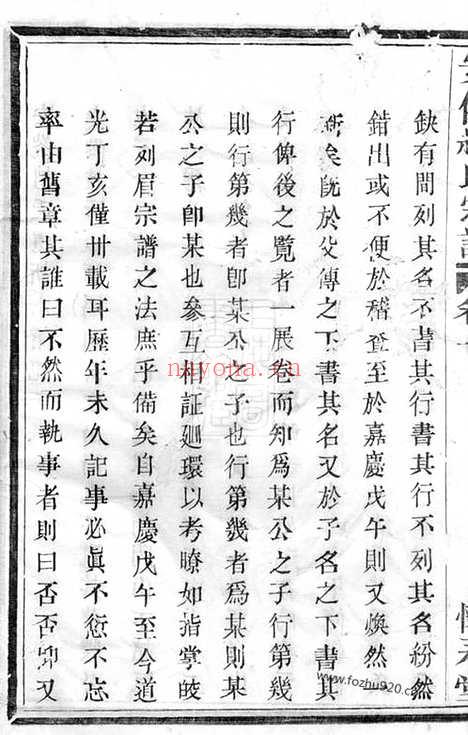 缺有間列其名不書其行書其行不列其名紛然
錯出或不便於稽查至於嘉慶戊午則又煥然
新矣既於父傳之下書其名又於子名之下書其
行俾後之覽者一展卷而知爲某公之子行第幾
則行第幾者卽某公之子也行第幾者爲某則某
公之子卽某也參互相証廻環以考瞭如指掌皎
若列眉宗譜之法庶乎備矣自嘉慶戊午至今道
光丁亥僅卅載耳歷年未久記事必眞不愆不忘
率由舊章其誰曰不然而執事者則曰否否卿又
nayona.cn
www.fozhu920.com